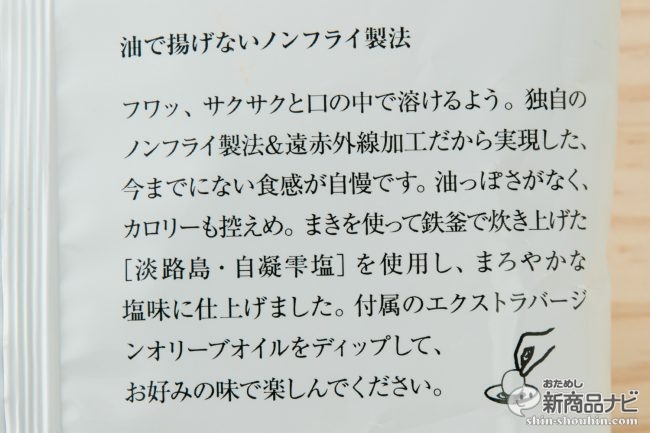 油で揚げないノンフライ製法
フワッ、サクサクと口の中で溶けるよう。独自の
ノンフライ製法&遠赤外線加工だから実現した、
今までにない食感が自慢です。油っぽさがなく、
カロリーも控えめ。まきを使って鉄釜で炊き上げた
[淡路島・自凝雫塩]を使用し、まろやかな
塩味に仕上げました。付属のエクストラバージ
ンオリーブオイルをディップして、
お好みの味で楽しんでください。
おためし
新商品ナビ
shin-shouhin.com